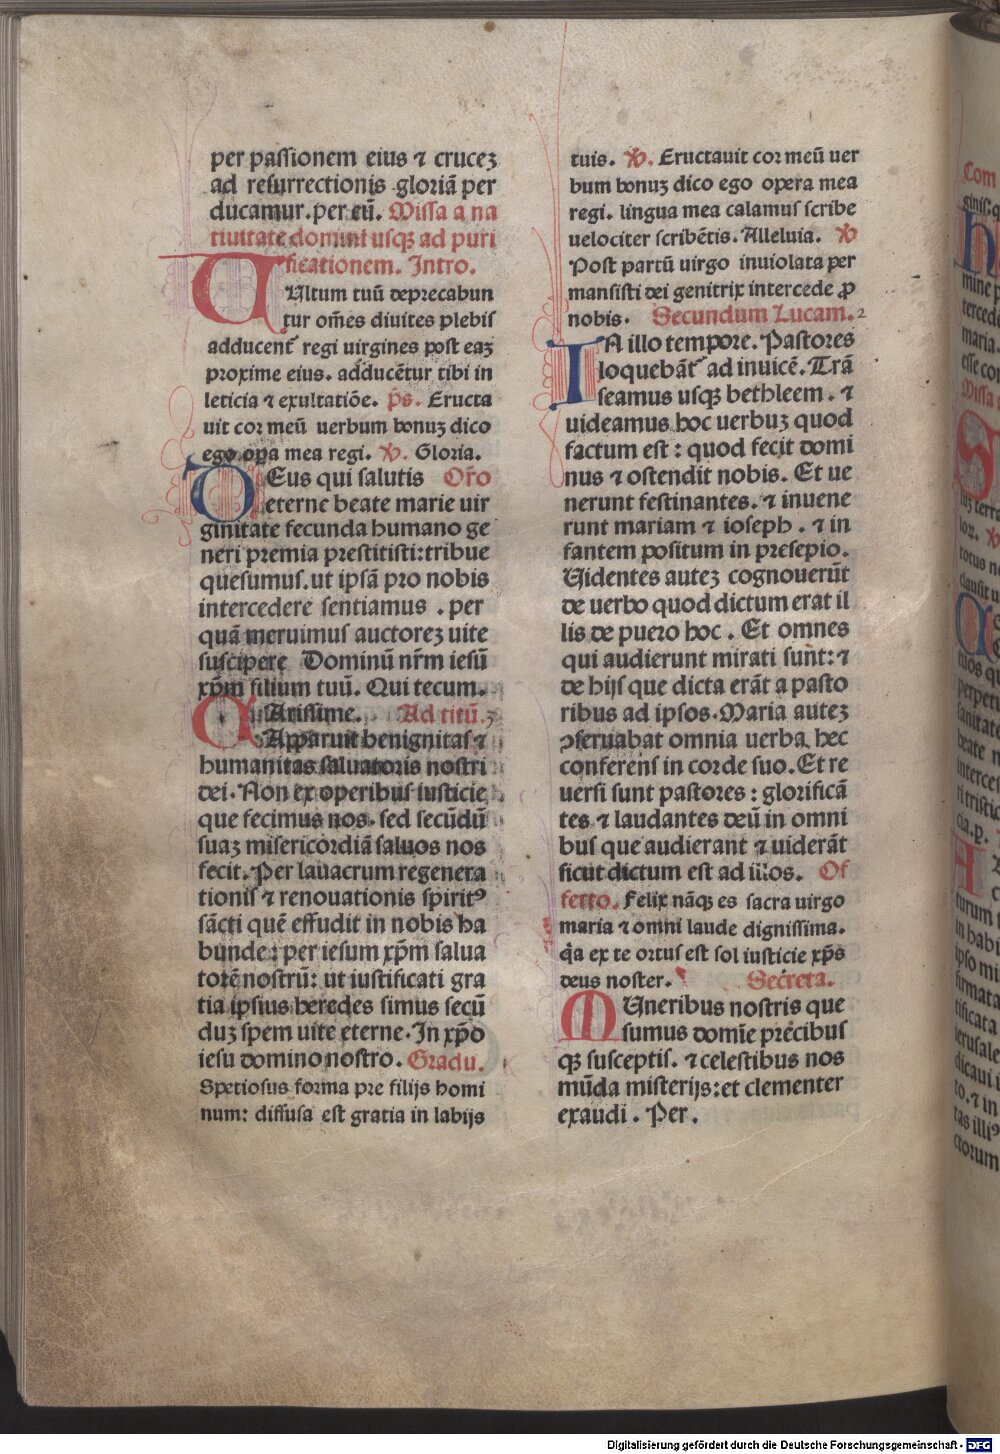 per passionem eius ⁊ crucez
ad resurrectionis gloriā per
ducamur. per eū. Missa a na
tiuitate domini usqꝫ ad puri
ficationem. Intro.
Vltum tuū deprecabun
tur om̄es diuites plebis
adducent̄ regi uirgines post eaꝫ
proxime eius. adducētur tibi in
leticia ⁊ exultatiōe. p̄s. Eructa
uit cor meū uerbum bonuꝫ dico
ego opa mea regi. ℣. Gloria.
DEus qui salutis Or̄o
eterne beate marie uir
ginitate fecunda humano ge
neri premia prestitisti: tribue
quesumus. ut ipsā pro nobis
intercedere sentiamus . per
quā meruimus auctoreꝫ uite
suscipere Dominū nr̄m iesū
xp̄m filium tuū. Qui tecum.
CArissime. Ad titū. 3
Apparuit benignitas ⁊
humanitas saluatoris nostri
dei. Non ex operibus iusticie
que fecimus nos. sed secūdū
suaꝫ misericordiā saluos nos
fecit. Per lauacrum regenera
tionis ⁊ renouationis spiritꝰ
sācti quē effudit in nobis ha
bunde: per iesum xp̄m salua
torē nostrū: ut iustificati gra
tia ipsius heredes simus secū
duꝫ spem uite eterne. In xp̄o
iesu domino nostro. Gradu.
Spetiosus forma pre filijs homi
num: diffusa est gratia in labijs
tuis. ℣. Eructauit cor meū uer
bum bonuꝫ dico ego opera mea
regi. lingua mea calamus scribe
uelociter scribētis. Alleluia. ℣
Post partū uirgo inuiolata per
mansisti dei genitrix intercede ꝓ
nobis. Secundum Lucam. 2
IN illo tempore. Pastores
loquebāt̄ ad inuicē. Trā
seamus usqꝫ bethleem. ⁊
uideamus hoc uerbuꝫ quod
factum est: quod fecit domi
nus ⁊ ostendit nobis. Et ue
nerunt festinantes. ⁊ inuene
runt mariam ⁊ ioseph. ⁊ in
fantem positum in presepio.
Videntes auteꝫ cognouerūt
de uerbo quod dictum erat il
lis de puero hoc. Et omnes
qui audierunt mirati sunt: ⁊
de hijs que dicta erāt a pasto
ribus ad ipsos. Maria auteꝫ
ꝯseruabat omnia uerba hec
conferens in corde suo. Et re
uersi sunt pastores: glorificā
tes ⁊ laudantes deū in omni
bus que audierant ⁊ uiderāt
sicut dictum est ad illos. Of
ferto. Felix nāqꝫ es sacra uirgo
maria ⁊ omni laude dignissima.
q̄a ex te ortus est sol iusticie xp̄s
deus noster. Secreta.
MVneribus nostris que
sumus domīe précibus
qꝫ susceptis. ⁊ celestibus nos
mūda misterijs: et clementer
exaudi. Per.
Digitalisierung gefördert durch die Deutsche Forschungsgemeinschaft - DFG